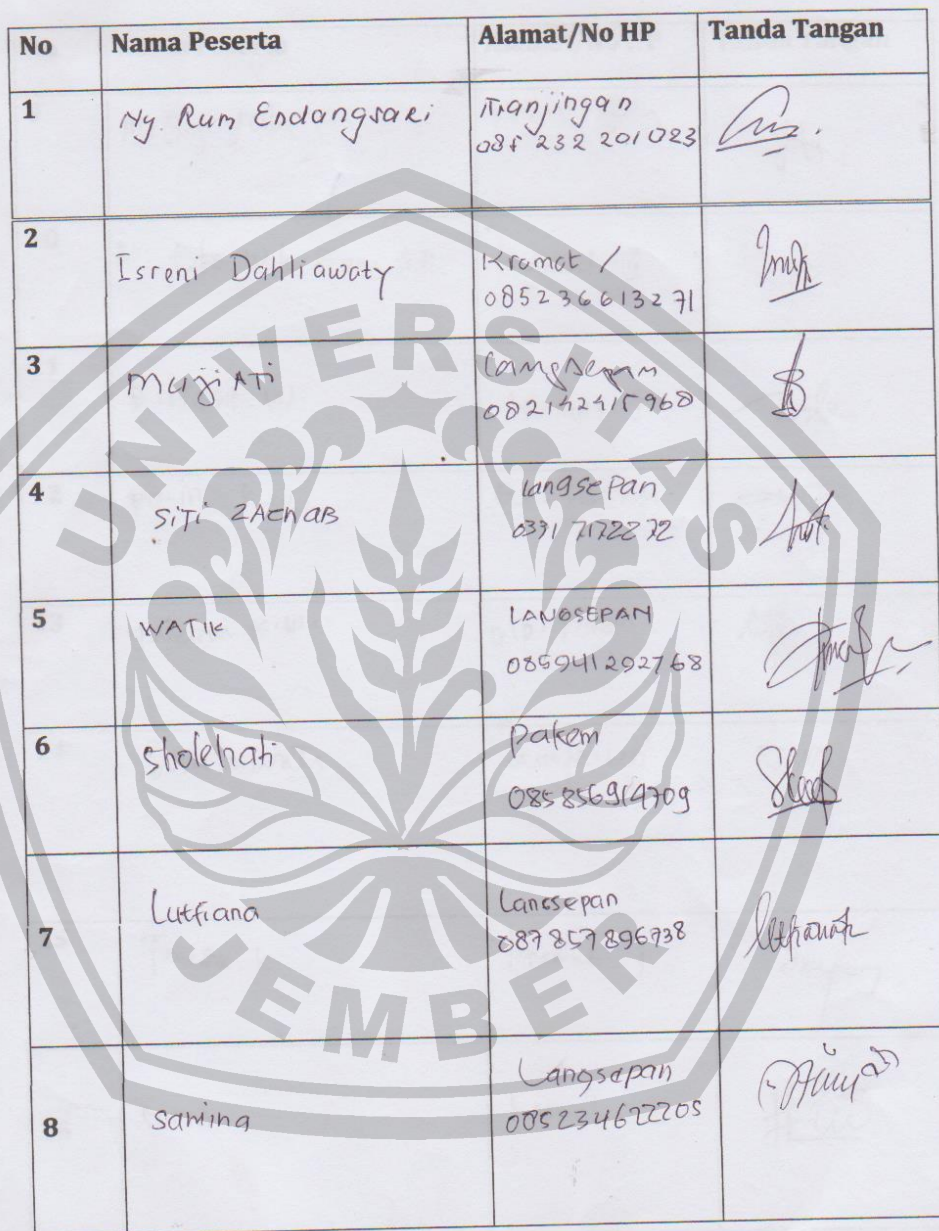 No Nama Peserta Alamat/No HP Tanda Tangan
1 Ny. Rum Endangsari Tranjingan
085 232 201 023
2 Isreni Dahliawaty Kramat /
085236613271
3 Murjiati Langsepan
082142415968
4 SiTi ZAEnAB langsepan
0331 7172272
5 WATIK LANGSEPAN
085941292768
6 Sholehati pakem
085856914709
7 Lutfiana Langsepan
087857896738
8 Samina Langsepan
085234622205
UNIVERSITAS
JEMBER